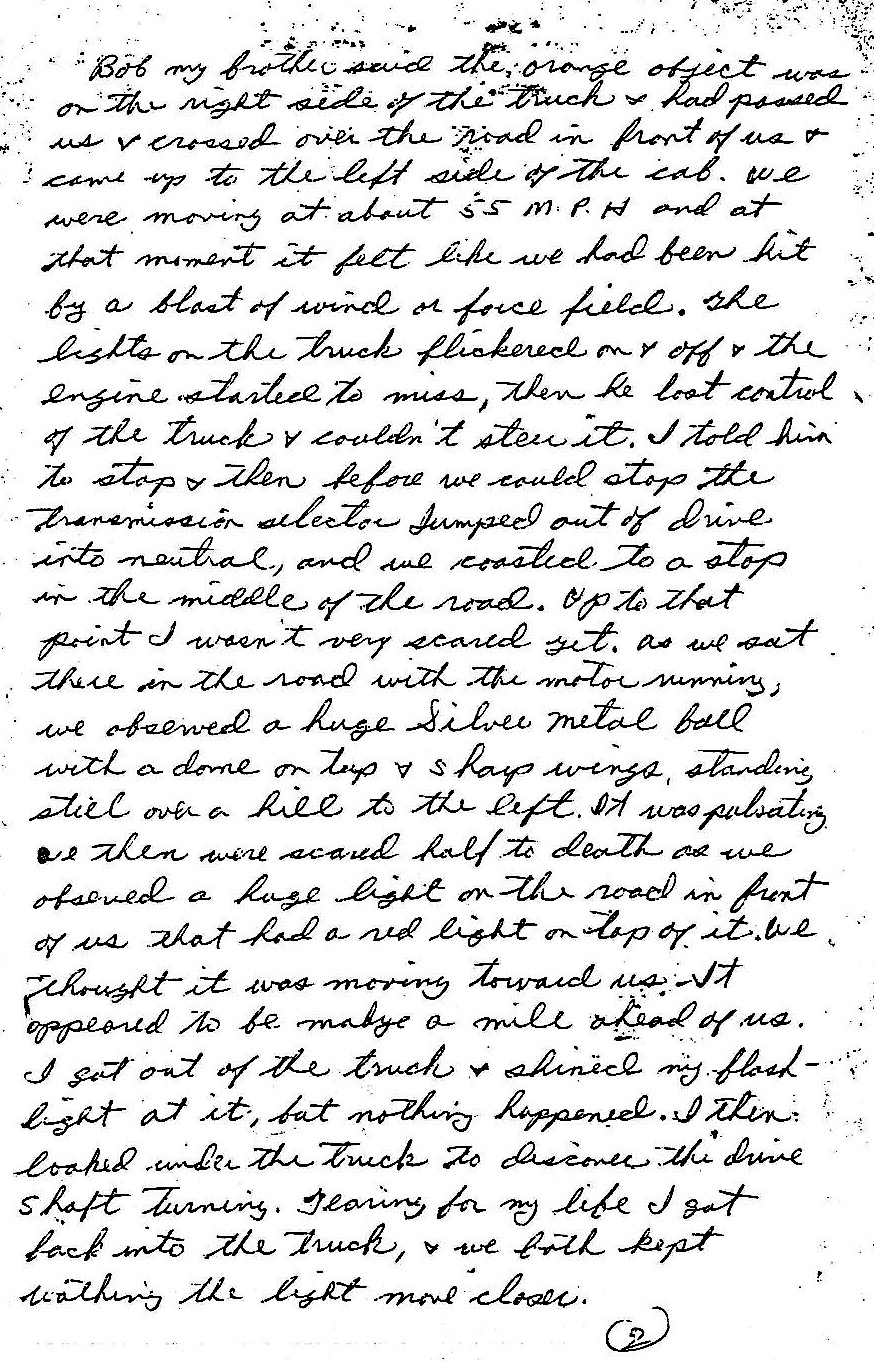 Bob my brother said the orange object was
on the right side of the truck & had passed
us & crossed over the road in front of us &
came up to the left side of the cab. We
were moving at about 55 M.P.H and at
that moment it felt like we had been hit
by a blast of wind or force field. The
lights on the truck flickered on & off & the
engine started to miss, then he lost control
of the truck & couldn't steer it. I told him
to stop & then before we could stop the
transmission selector Jumped out of drive
into neutral, and we coasted to a stop
in the middle of the road. Up to that
point I wasn't very scared yet. as we sat
there in the road with the motor running,
we observed a huge Silver metal ball
with a dome on top & sharp wings, standing
still over a hill to the left. It was pulsating
we then were scared half to death as we
observed a huge light on the road in front
of us that had a red light on top of it. We
thought it was moving toward us. It
appeared to be mabye a mile ahead of us.
I got out of the truck & shined my flash-
light at it, but nothing happened. I then
looked under the truck to discover the drive
shaft turning. Fearing for my life I got
back into the truck, & we both kept
wathing the light move closer.
2